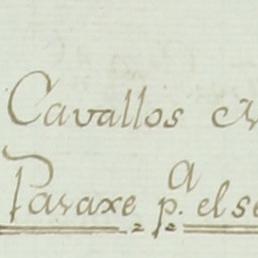 Cavallos
Paraxe p.ª el